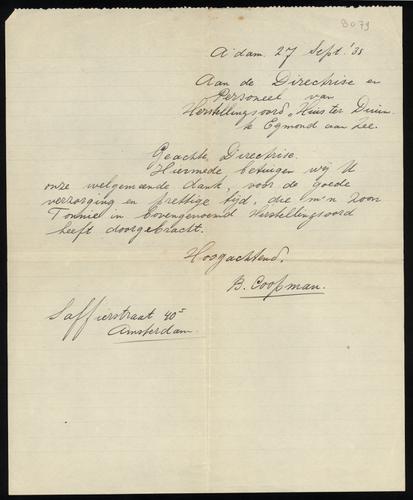 3079
A'dam. 27 Sept. '35
Aan de Directrise en
Personeel van
Herstellingsoord "Huis ter Duin
te Egmond aan Zee.
Geachte, Directrise.
Hiermede, betuigen wij U
onze welgemeende dank, voor de goede
verzorging en prettige tijd, die m'n zoon
Tonnie in bovengenoemd Herstellingsoord
heeft doorgebracht.
Hoogachtend.
B. Coopman.
Saffierstraat 40 I
Amsterdam.